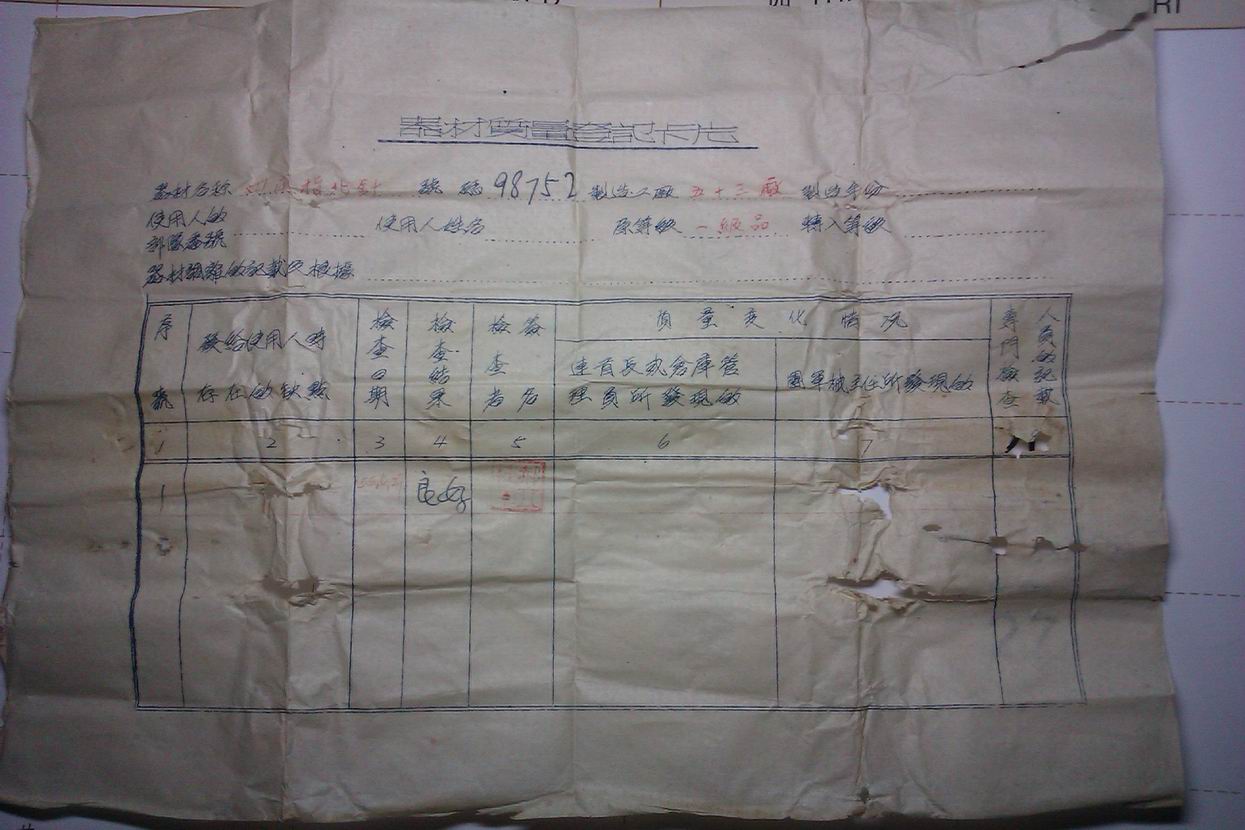 器材質量登記卡片
器材名称 指北針 號碼 98752 製造工廠 五十三廠 製造年份
使用人的部隊番號 使用人姓名 原等級 一級品 轉入等級
器材調離的記載及根據
序號 發給使用人時存在的缺點 檢查日期 檢查結果 檢查者簽名 質量変化情况 連首長或倉庫管理員所發現的 團軍械主任所發現的 專門檢查人員的記載
1 2 3 4 5 6 7
1 良好
2